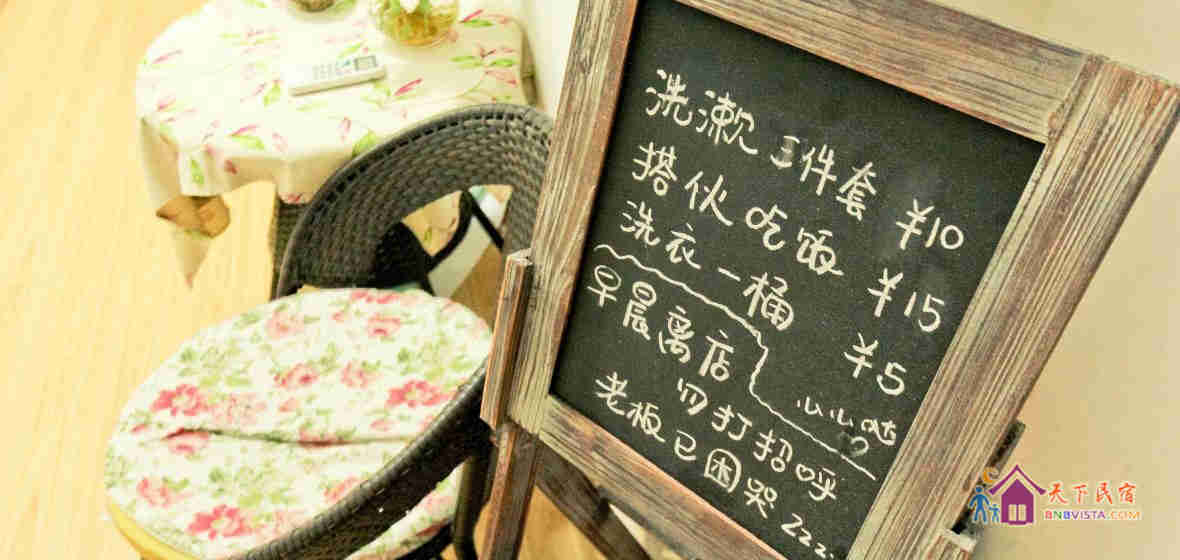 洗漱三件套 ¥10
搭伙吃饭 ¥15
洗衣一桶 ¥5
早晨离店
勿打招呼
老板已困哭zzz...
天下民宿
BNBVISTA.COM